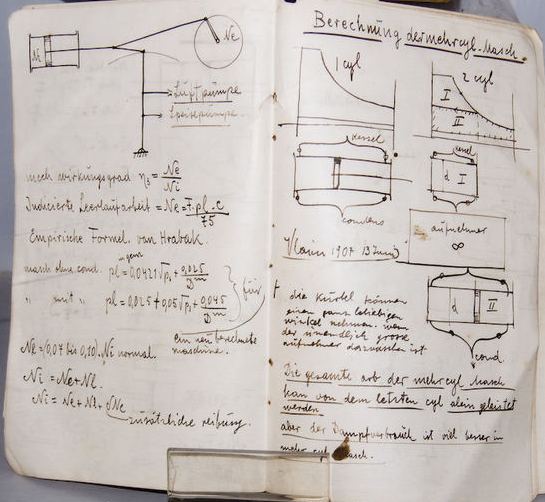 Ni
Ne
Luftpumpe
Speisepumpe.
mech wirkungsgrad η₃ = Ne/Ni
Indicierte Leerlaufarbeit = Ne = F·pl·c/75
Empirische Formel van Hrabak.
masch ohne cond. pl = 0,0421√p₁ + 0,025/Dm
" mit " pl = 0,025 + 0,05√p₁ + 0,045/Dm
für
ein neu berechnete
maschine.
Nl = (0,07 bis 0,10) Ni normal.
Ni = Ne + Nl.
Ni = Ne + Nl +
zusätzliche reibung.
Berechnung der mehrcyl. Masch.
1 cyl
2 cyl
I
II
kessel
kessel
d I
condens
aufnehmer
∞
1907 13 Juni
die Kurbel können
einen ganz beliebigen
winkel nehmen. wenn
der unendlich grosse
aufnehmer dazwischen ist
d II
cond.
Die gesamte arb der mehrcyl Masch
kan von dem letzten cyl alein geleistet
werden
aber der Dampfverbrauch ist viel besser in
mehr cyl masch.